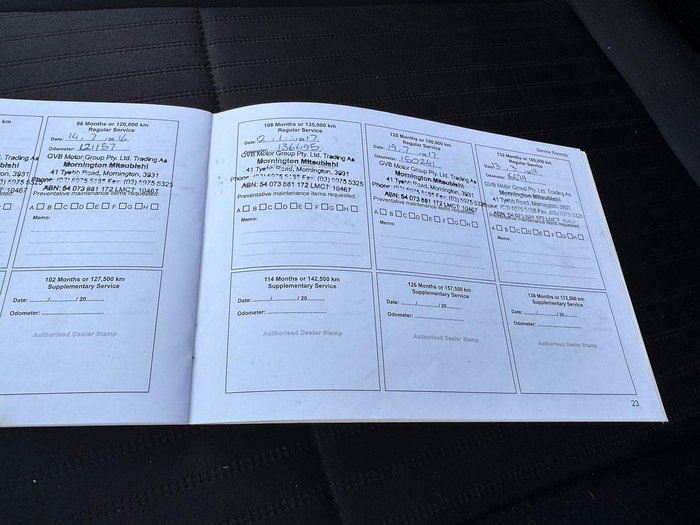 km
Trading As
Mitsubishi
3931
10467
requested.
96 Months or 120,000 km
Regular Service
Date: 14 / 7 / 20 16
Odometer: 121157
GVB Motor Group Pty. Ltd. Trading As
Mornington Mitsubishi
41 Tyabb Road, Mornington, 3931
Phone: (03) 5975 5185 Fax: (03) 5975 5325
ABN: 54 073 881 172 LMCT 10467
Preventative maintenance items requested.
A B C D E F G H
Memo:
102 Months or 127,500 km
Supplementary Service
Date: ......../......../ 20........
Odometer:
Authorised Dealer Stamp
Service Records
108 Months or 135,000 km
Regular Service
Date: 12 / 1 / 2017
Odometer: 136495
GVB Motor Group Pty. Ltd. Trading As
Mornington Mitsubishi
41 Tyabb Road, Mornington, 3931
Phone: (03) 5975 5185 Fax: (03) 5975 5325
ABN: 54 073 881 172 LMCT 10467
Preventative maintenance items requested.
A B C D E F G H
Memo:
114 Months or 142,500 km
Supplementary Service
Date: ......../......../ 20........
Odometer:
Authorised Dealer Stamp
120 Months or 150,000 km
Regular Service
Date: 19 / 7 / 2017
Odometer: 150241
GVB Motor Group Pty. Ltd. Trading As
Mornington Mitsubishi
41 Tyabb Road, Mornington, 3931
Phone: (03) 5975 5185 Fax: (03) 5975 5325
ABN: 54 073 881 172 LMCT 10467
Preventative maintenance items requested.
A B C D E F G H
Memo:
126 Months or 157,500 km
Supplementary Service
Date: ......../......../ 20........
Odometer:
Authorised Dealer Stamp
132 Months or 165,000 km
Regular Service
GVB Motor Group Pty. Ltd. Trading As
Mornington Mitsubishi
41 Tyabb Road, Mornington, 3931
Phone: (03) 5975 5185 Fax: (03) 5975 5325
ABN: 54 073 881 172 LMCT 10467
Preventative maintenance items requested.
A B C D E F G H
Memo:
138 Months or 172,500 km
Supplementary Service
Date: ......../......../ 20........
Odometer:
Authorised Dealer Stamp
23